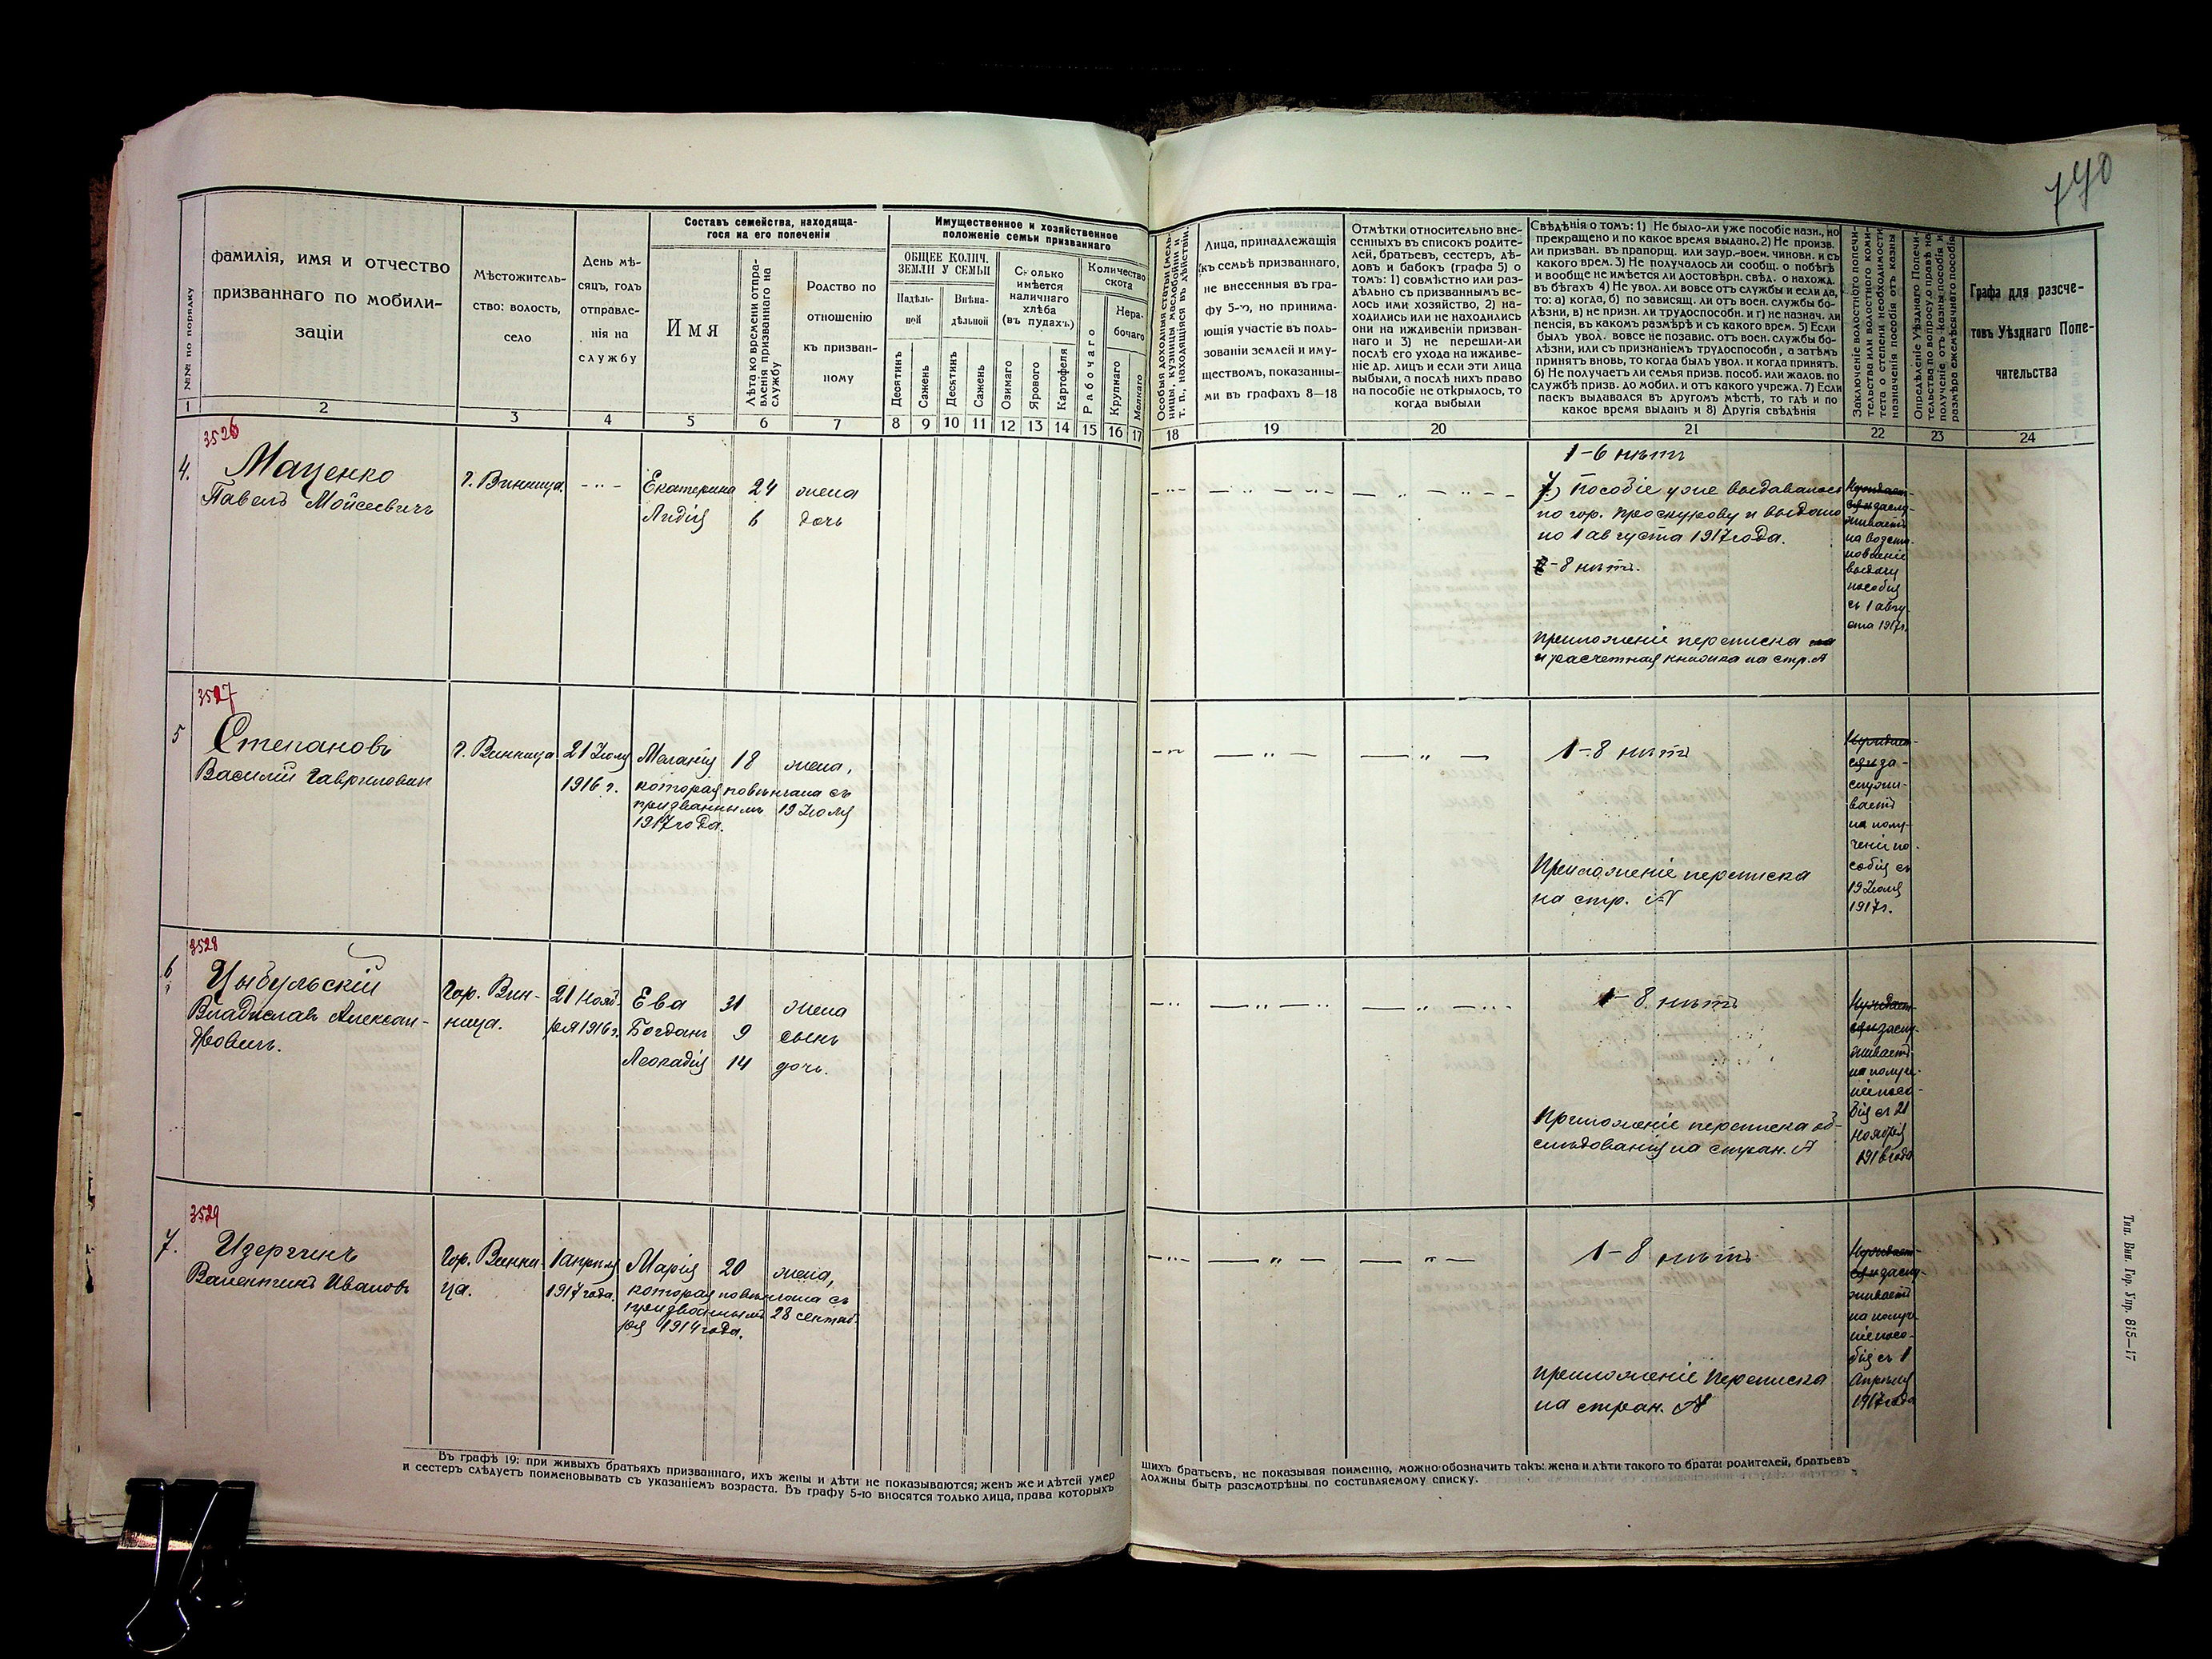 740
№№ по порядку
фамилія, имя и отчество
призваннаго по мобили-
заціи
Мѣстожитель-
ство: волость,
село
День мѣ-
сяцъ, годъ
отправле-
нія на
службу
Составъ семейства, находяща-
гося на его попеченіи
Имя
Лѣта ко времени отпра-
вленія призваннаго на
службу
Родство по
отношенію
къ призван-
ному
Имущественное и хозяйственное
положеніе семьи призваннаго
ОБЩЕЕ КОЛИЧ.
ЗЕМЛИ У СЕМЬИ
Надѣль-
ной
Внѣна-
дѣльной
Десятинъ
Сажень
Десятинъ
Сажень
Сколько
имѣется
наличнаго
хлѣба
(въ пудахъ)
Озимаго
Ярового
Картофеля
Количество
скота
Рабочаго
Нера-
бочаго
Крупнаго
Мелкаго
Особыя доходныя статьи (мель-
ницы, кузницы, маслобойни и
т. п., находящіяся въ дѣйствіи.
Лица, принадлежащія
къ семьѣ призваннаго,
не внесенныя въ гра-
фу 5-ю, но принима-
ющія участіе въ поль-
зованіи землей и иму-
ществомъ, показанны-
ми въ графахъ 8—18
Отмѣтки относительно вне-
сенныхъ въ списокъ родите-
лей, братьевъ, сестеръ, дѣ-
довъ и бабокъ (графа 5) о
томъ: 1) совмѣстно или раз-
дѣльно съ призваннымъ ве-
лось ими хозяйство, 2) на-
ходились или не находились
они на иждивеніи призван-
наго и 3) не перешли-ли
послѣ его ухода на иждиве-
ніе др. лицъ и если эти лица
выбыли, а послѣ нихъ право
на пособіе не открылось, то
когда выбыли
Свѣдѣнія о томъ: 1) Не было-ли уже пособіе назн., но
прекращено и по какое время выдано. 2) Не произв.
ли призван. въ прапорщ. или заур.-воен. чиновн. и съ
какого врем. 3) Не получалось ли сообщ. о побѣгѣ
и вообще не имѣется ли достовѣрн. свѣд. о нахожд.
въ бѣгахъ 4) Не увол. ли вовсе отъ службы и если да,
то: а) когда, б) по зависящ. ли отъ воен. службы бо-
лѣзни, в) не призн. ли трудоспособн. и г) не назнач. ли
пенсія, въ какомъ размѣрѣ и съ какого врем. 5) Если
былъ увол. вовсе не позавис. отъ воен. службы бо-
лѣзни, или съ признаніемъ трудоспособн, а затѣмъ
принятъ вновь, то когда былъ увол. и когда принятъ.
6) Не получаетъ ли семья призв. пособ. или жалов. по
службѣ призв. до мобил. и отъ какого учрежд. 7) Если
паекъ выдавался въ другомъ мѣстѣ, то гдѣ и по
какое время выданъ и 8) Другія свѣдѣнія
Заключеніе волостного попечи-
тельства или волостного коми-
тета о степени необходимости
назначенія пособія отъ казны
Опредѣленіе Уѣзднаго Попечи-
тельства по вопросу о правѣ на
полученіе отъ казны пособія и
размѣра ежемѣсячнаго пособія
Графа для разсче-
товъ Уѣзднаго Попе-
чительства
1 2 3 4 5 6 7 8 9 10 11 12 13 14 15 16 17 18 19 20 21 22 23 24
3526
4. Маценко
Павелъ Мойсеевичъ
г. Винница.
Екатерина 24 жена
Лидія 6 дочь
1-6 нѣтъ
7) Пособіе уже выдавалось
по гор. Проскурову и выдано
по 1 августа 1917 года.
8 нѣтъ.
Приложеніе переписка
и расчетная книжка на стр. №
заслу-
живаетъ
на возста-
новленіе
выдачи
пособія
съ 1 авгу-
ста 1917г.
3527
5 Степановъ
Василій Гавриловичъ
г. Винница
21 Іюля
1916 г.
Меланія 18 жена,
которая повѣнчана съ
призваннымъ 19 Іюля
1917 года.
1-8 нѣтъ
Приложеніе переписка
на стр. №
за-
служи-
ваетъ
на полу-
ченіе по-
собія съ
19 Іюля
1917г.
3528
6 Цыбульскій
Владиславъ Алексан-
дровичъ.
Гор. Вин-
ница.
21 Нояб-
ря 1916 г.
Ева 31 жена
Богданъ 9 сынъ
Леокадія 14 дочь.
1-8 нѣтъ
Приложеніе переписка об-
слѣдованія на стран. №
заслу-
живаетъ
на получе-
ніе посо-
бія съ 21
ноября
1916 года
3529
7. Изергинъ
Валентинъ Ивановъ
Гор. Винни-
ца.
1 апрѣля
1917 года.
Марія 20 жена,
которая повѣнчана съ
призваннымъ 28 сентяб-
ря 1914 года.
1-8 нѣтъ
Приложеніе переписка
на стран. №
заслу-
живаетъ
на получе-
ніе посо-
бія съ 1
Апрѣля
1917 года
Въ графѣ 19: при живыхъ братьяхъ призваннаго, ихъ жены и дѣти не показываются; женъ же и дѣтей умер
шихъ братьевъ, не показывая поименно, можно обозначить такъ: жена и дѣти такого то брата: родителей, братьевъ
и сестеръ слѣдуетъ поименовывать съ указаніемъ возраста. Въ графу 5-ю вносятся только лица, права которыхъ
должны быть разсмотрѣны по составляемому списку.
Тип. Вин. Гор. Упр. 815—17